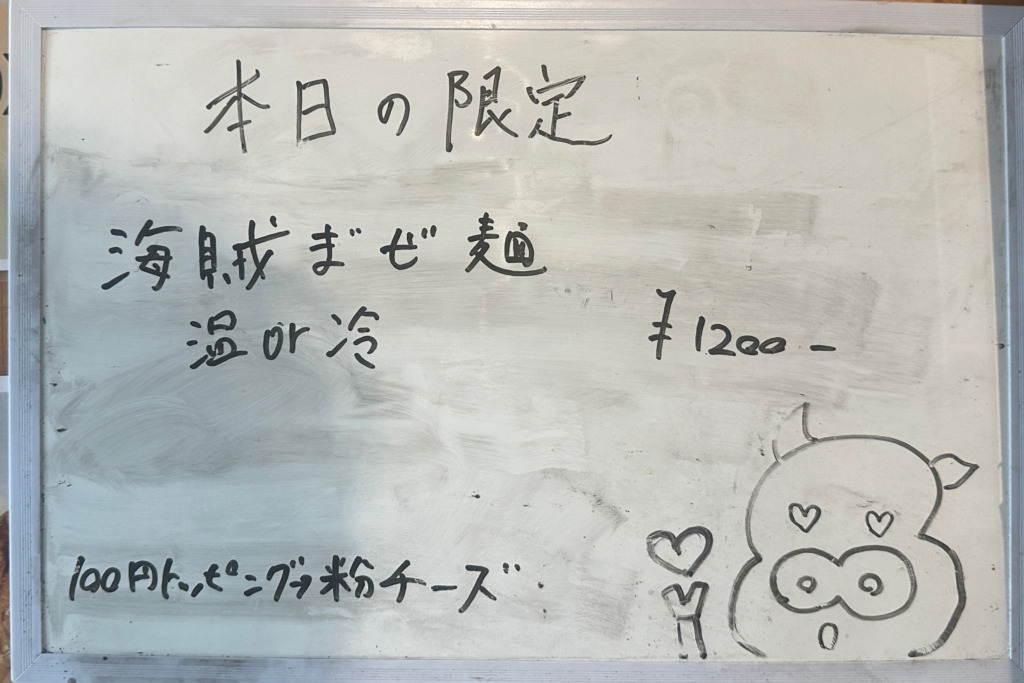 本日の限定
海賊まぜ麺
温or冷 ¥1200-
100円トッピング→粉チーズ